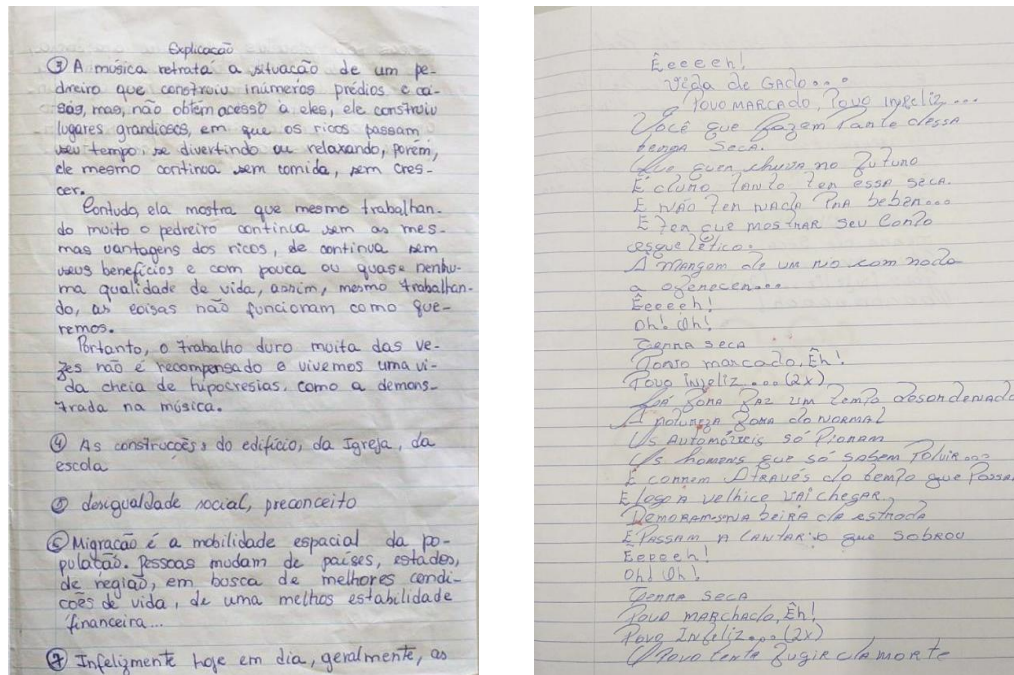 Explicação
③ A música retrata a situação de um pe-
dreiro que construiu inúmeros prédios e ca-
sas, mas, não obtém acesso à eles, ele construiu
lugares grandiosos, em que os ricos passam
seu tempo se divertindo ou relaxando, porém,
ele mesmo continua sem comida, sem cres-
cer.
Contudo, ela mostra que mesmo trabalhan-
do muito o pedreiro continua sem as mes-
mas vantagens dos ricos, de continua sem
seus benefícios e com pouca ou quase nenhu-
ma qualidade de vida, assim, mesmo trabalhan-
do, as coisas não funcionam como que-
remos.
Portanto, o trabalho duro muita das ve-
zes não é recompensado e vivemos uma vi-
da cheia de hipocresias, como a demons-
trada na música.
④ As construcções do edifício, da Igreja, da
escola
⑤ desigualdade social, preconceito
⑥ Migração é a mobilidade espacial da po-
pulação. Pessoas mudam de países, estados,
de região, em busca de melhores condi-
cões de vida, de uma melhos estabilidade
financeira...
⑦ Infelizmente hoje em dia, geralmente, as
Êeeeeh!
Vida de GADO...
POVO MARCADO, Povo infeliz...
Você que fazem Parte dessa
tempa Seca.
Que quer chuva no futuro
É cluro tanto ter essa seca.
E NÃO Ter NADA PRA beber...
E ter que mostrar seu Corpo
esquelético.
A Margem de um rio com nada
a oferecer...
Êeeeeh!
Oh! Oh!
Terra seca
Ponto marcado, Êh!
Povo infeliz....(2x)
Lá fora faz um tempo desordenado
A natureza fora do NORMAL
Os Automóveis só Pioram
Os homens que só sabem Poluir...
E correm Através do tempo que Passa
E logo a velhice vai chegar
Demoram-SNA beira da estrada
E PASSAM A CANTAR o que sobrou
Êeeeeh!
Oh! Oh!
Terra seca
Povo marchado, Êh!
Povo Infeliz....(2x)
O Povo tenta fugir da morte